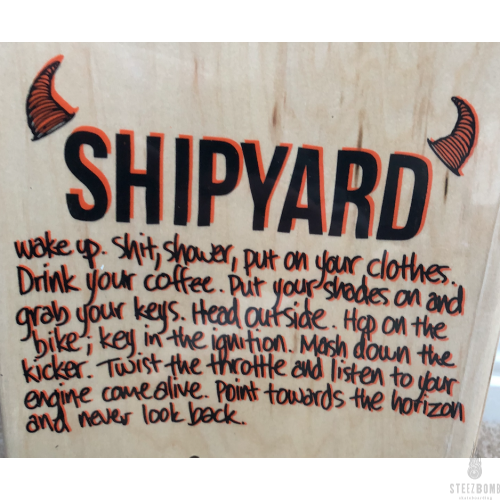 SHIPYARD
wake up. Shit, shower, put on your clothes.
Drink your coffee. Put your shades on and
grab your keys. Head outside. Hop on the
bike; key in the ignition. Mash down the
kicker. Twist the throttle and listen to your
engine come alive. Point towards the horizon
and never look back.
STEEZBOMB
skateboarding